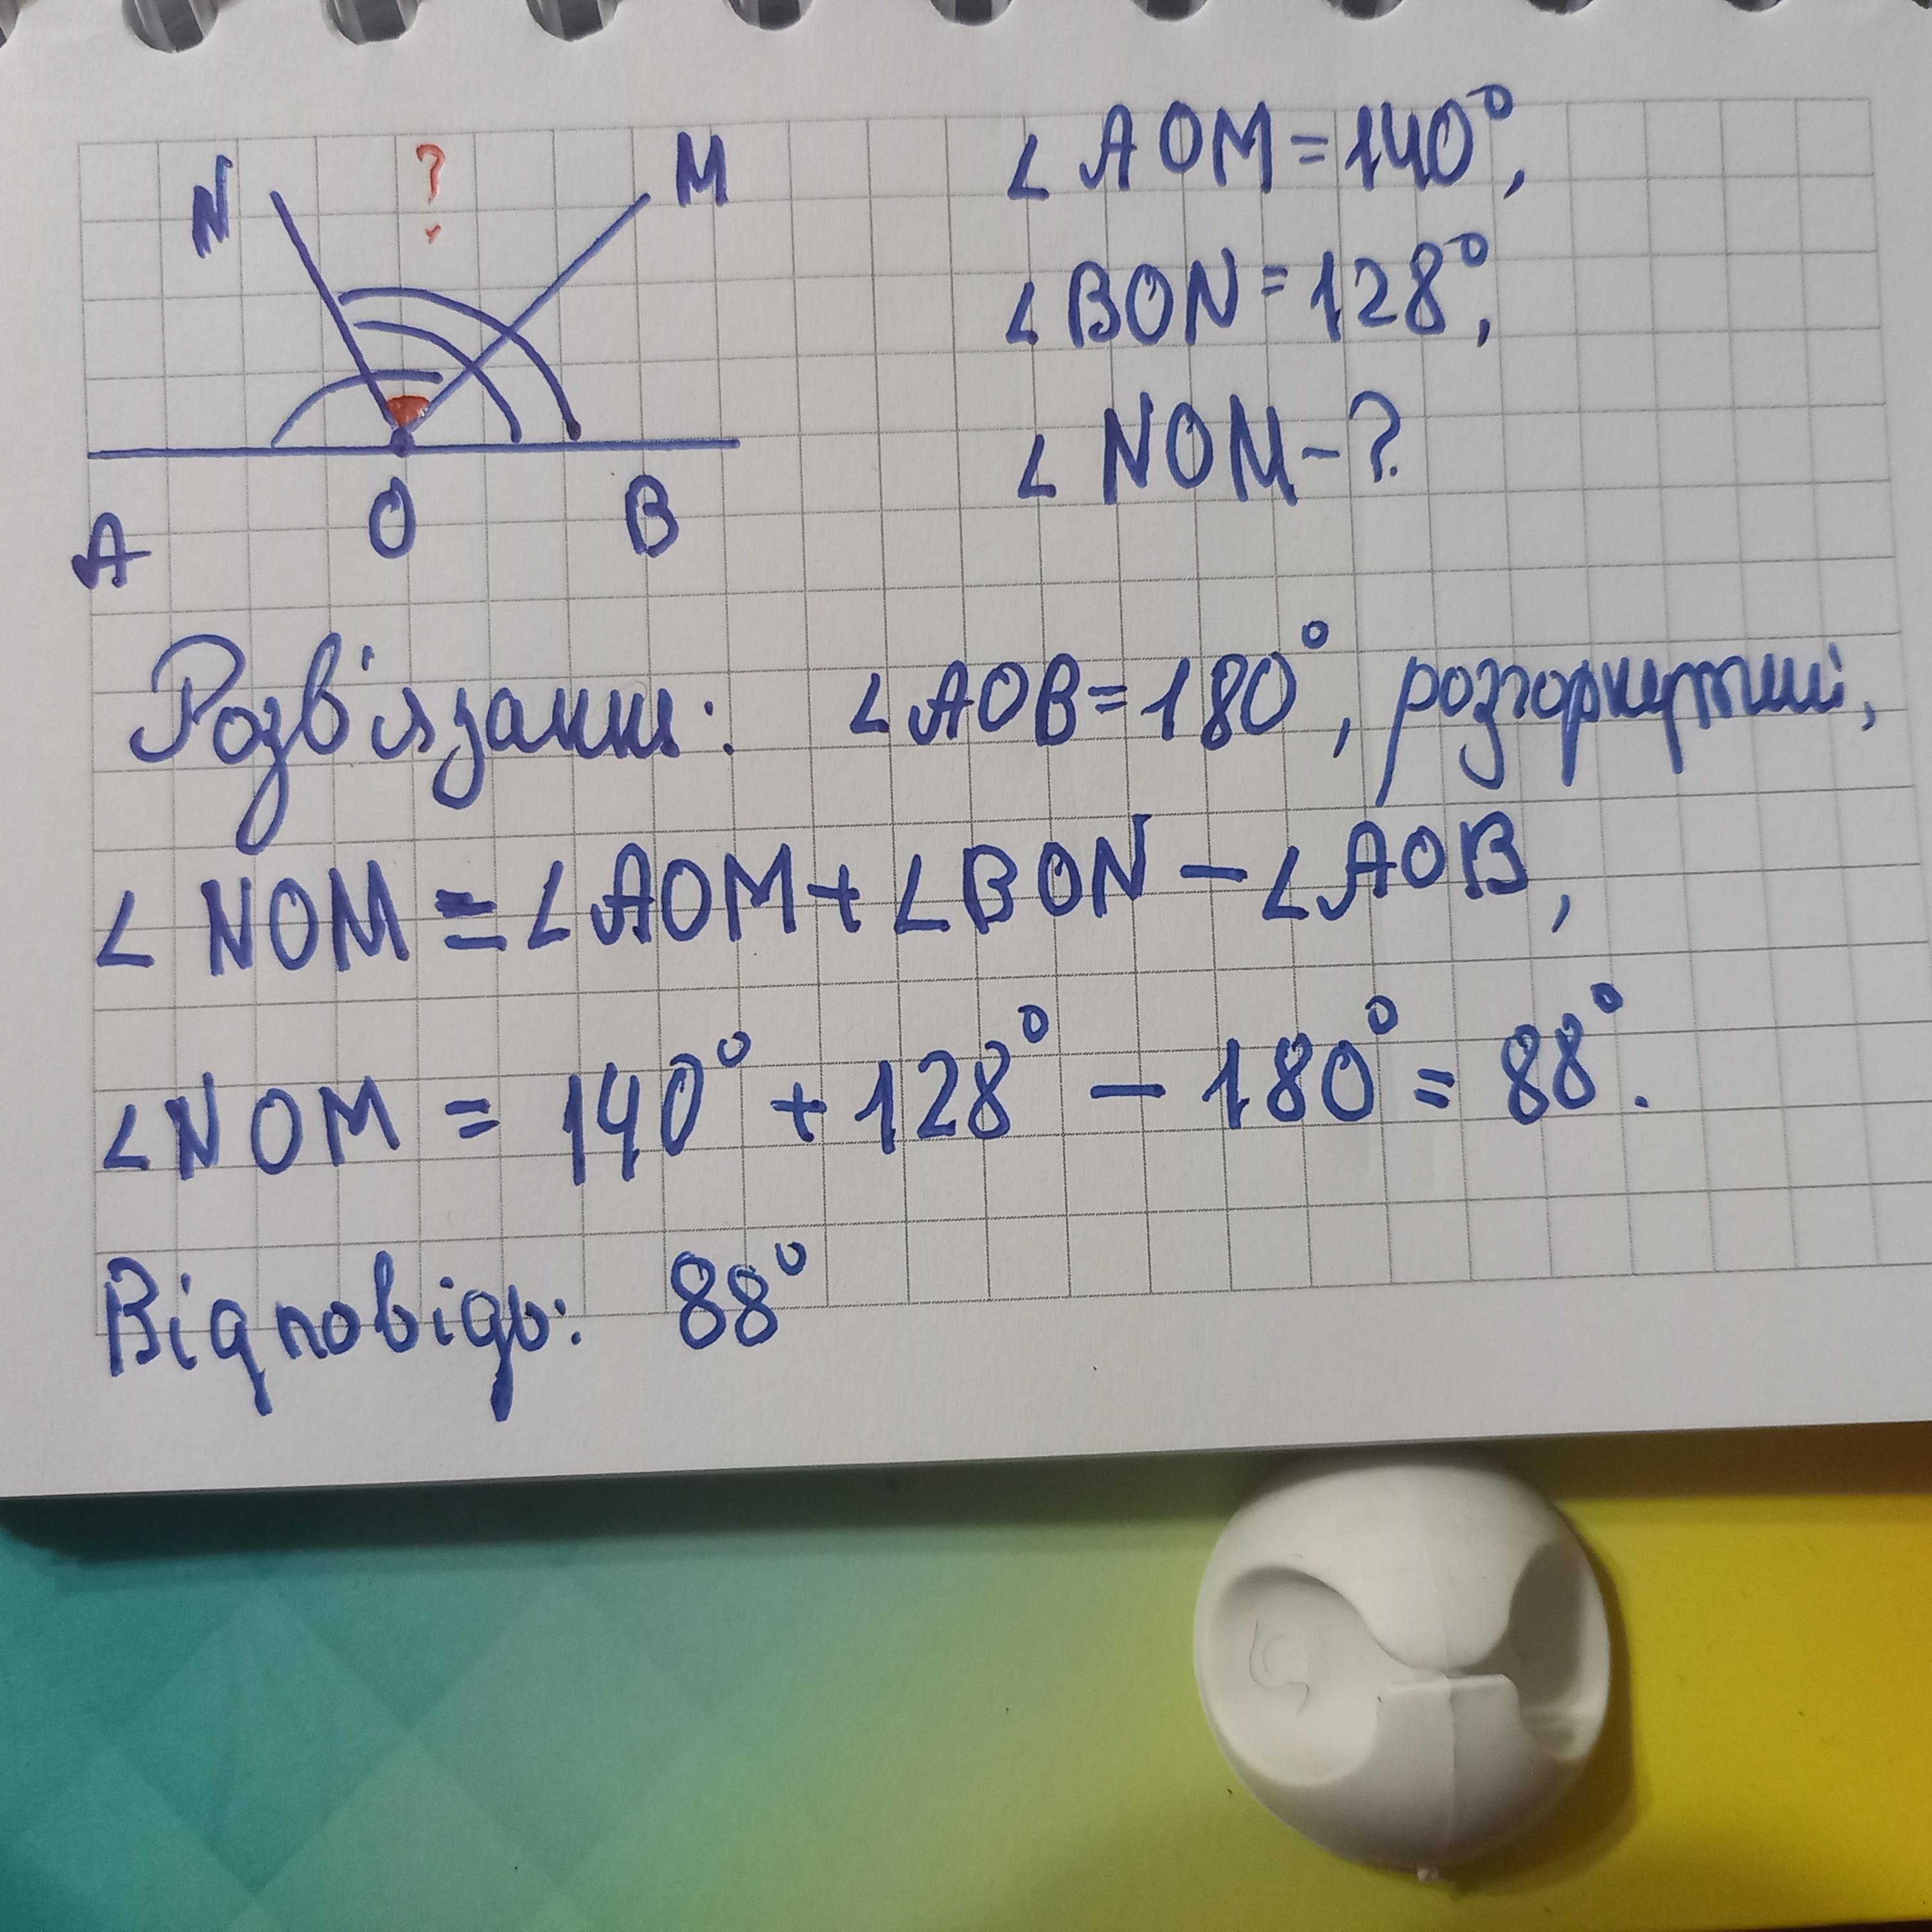 N ? M
A O B
∠AOM=140°,
∠BON=128°,
∠NOM-?
Розв'язання: ∠AOB=180°, розгорнутий,
∠NOM=∠AOM+∠BON-∠AOB,
∠NOM = 140° + 128° - 180° = 88°.
Відповідь: 88°